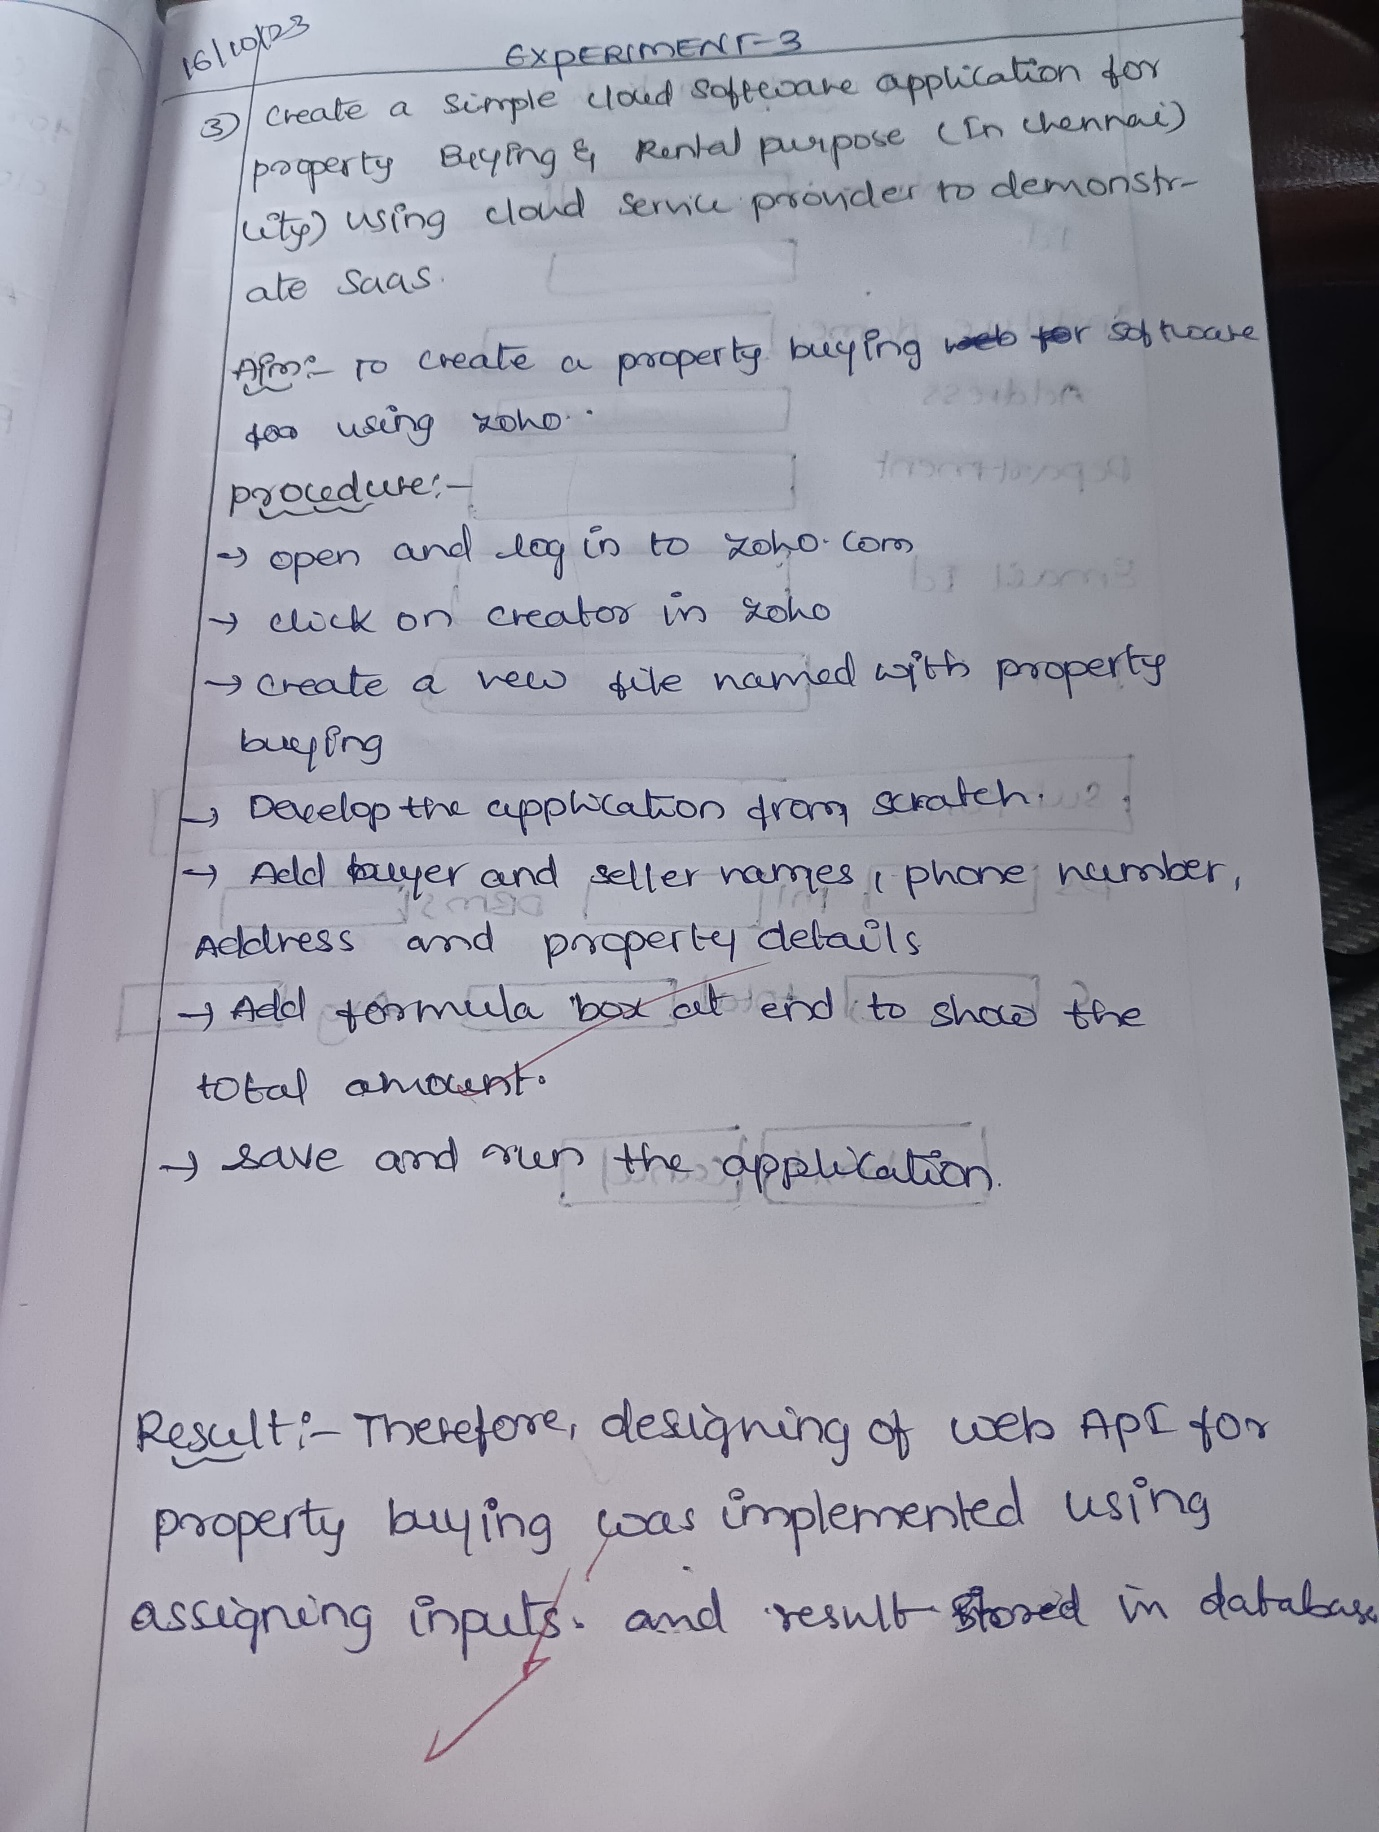 16/10/23
EXPERIMENT-3
3) Create a simple cloud software application for
property Buying & Rental purpose (In chennai)
city) using cloud service provider to demonstr-
ate Saas.
Aim:- To create a property buying web for software
for using zoho.
procedure:-
→ open and log in to zoho.com
→ click on creator in zoho
→ create a new file named with property
buying
→ Develop the application from scratch.
→ Add buyer and seller names, phone number,
Address and property details
→ Add formula box at end to show the
total amount.
→ save and run the application.
Result:- Therefore, designing of web API for
property buying was implemented using
assigning inputs. and result stored in database